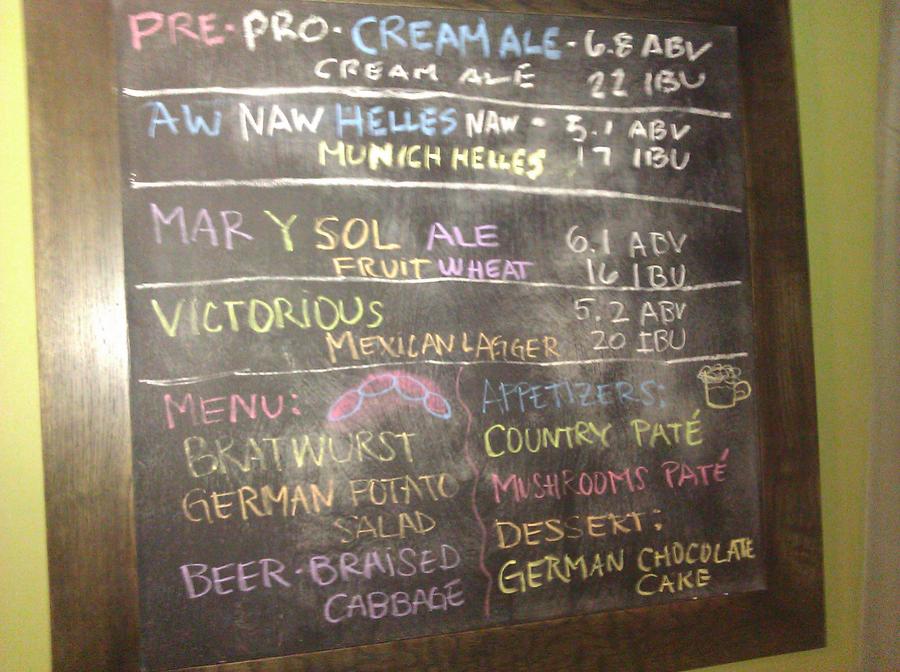 PRE-PRO-CREAM ALE - 6.8 ABV
CREAM ALE 22 IBU
AW NAW HELLES NAW - 5.1 ABV
MUNICH HELLES 17 IBU
MAR Y SOL ALE 6.1 ABV
FRUIT WHEAT 16 IBU
VICTORIOUS 5.2 ABV
MEXICAN LAGGER 20 IBU
MENU:
BRATWURST
GERMAN POTATO
SALAD
BEER-BRAISED
CABBAGE
APPETIZERS:
COUNTRY PATÉ
MUSHROOMS PATÉ
DESSERT:
GERMAN CHOCOLATE
CAKE